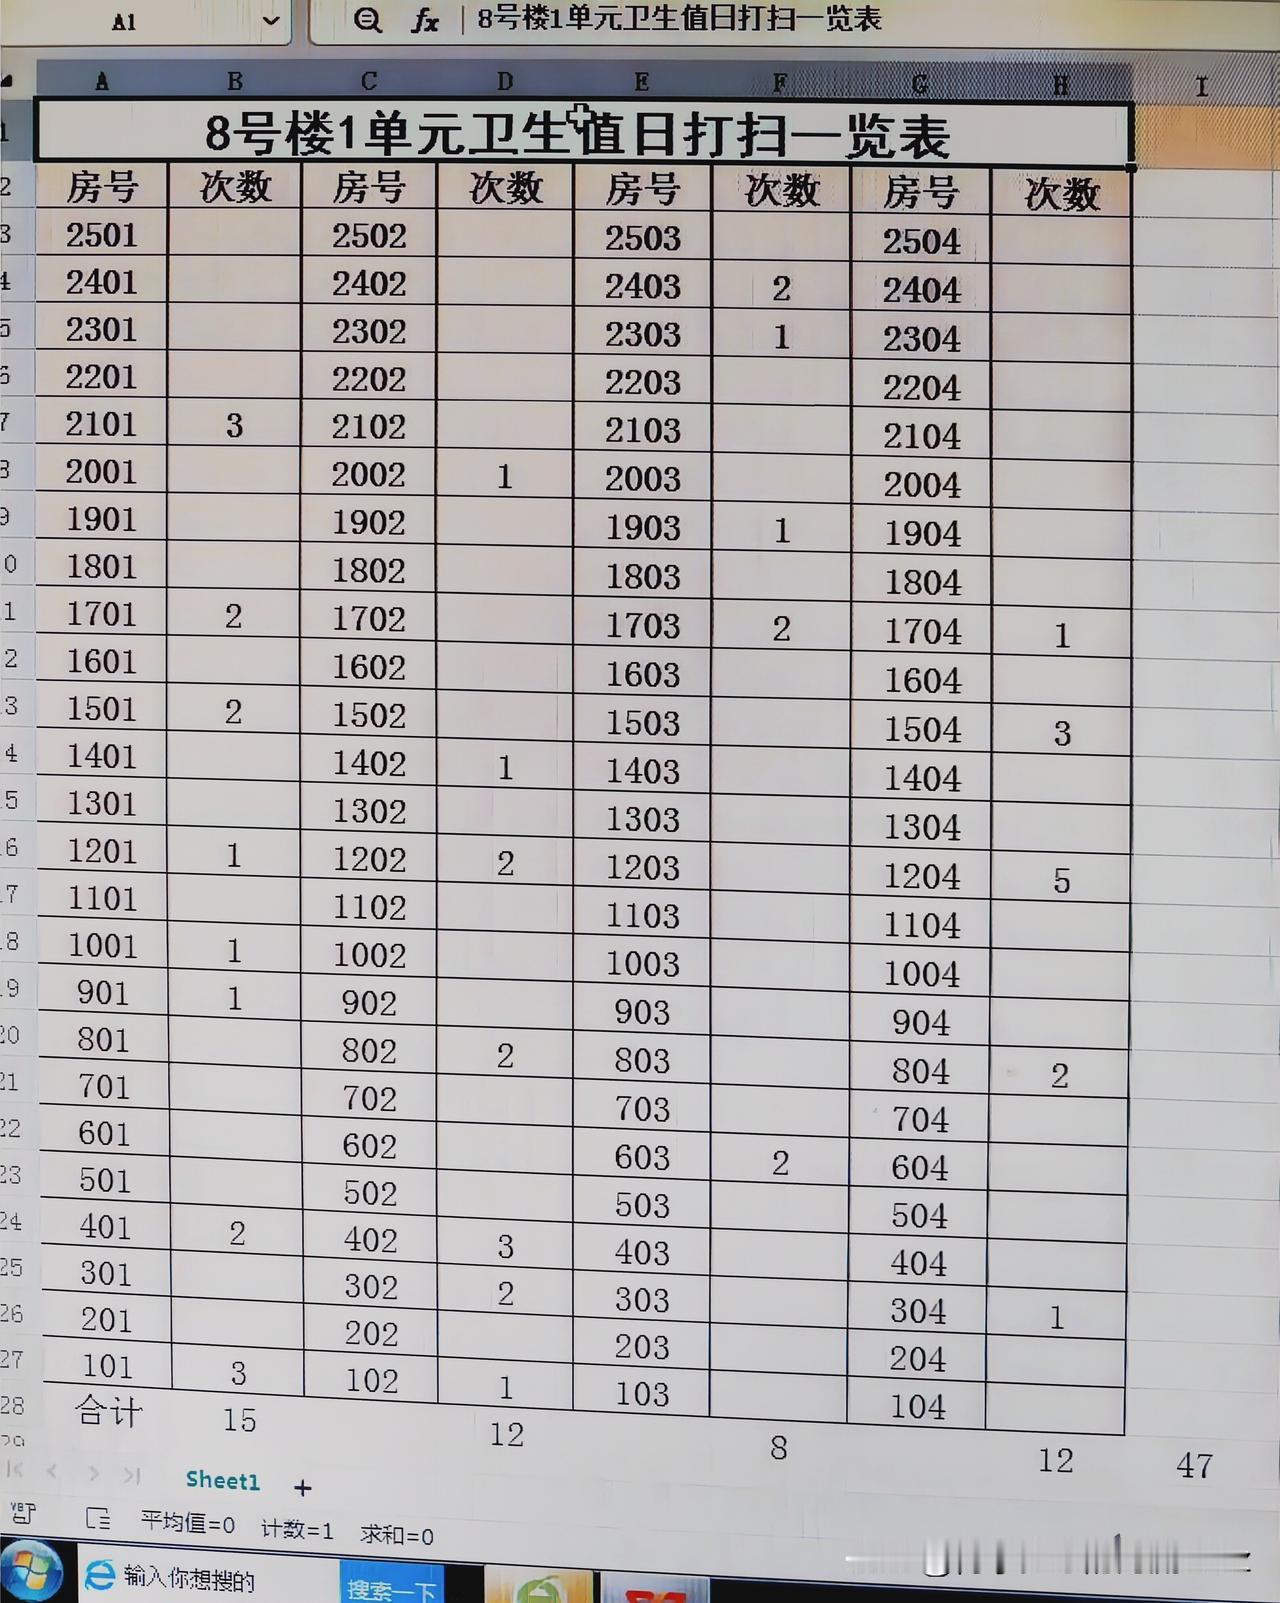 A1 fx 8号楼1单元卫生值日打扫一览表
A B C D E F G H I
8号楼1单元卫生值日打扫一览表
2 房号 次数 房号 次数 房号 次数 房号 次数
3 2501 2502 2503 2504
4 2401 2402 2403 2 2404
5 2301 2302 2303 1 2304
6 2201 2202 2203 2204
7 2101 3 2102 2103 2104
8 2001 2002 1 2003 2004
9 1901 1902 1903 1 1904
0 1801 1802 1803 1804
1 1701 2 1702 1703 2 1704 1
2 1601 1602 1603 1604
3 1501 2 1502 1503 1504 3
4 1401 1402 1 1403 1404
5 1301 1302 1303 1304
6 1201 1 1202 2 1203 1204 5
7 1101 1102 1103 1104
8 1001 1 1002 1003 1004
9 901 1 902 903 904
20 801 802 2 803 804 2
21 701 702 703 704
22 601 602 603 2 604
23 501 502 503 504
24 401 2 402 3 403 404
25 301 302 2 303 304 1
26 201 202 203 204
27 101 3 102 1 103 104
28 合计 15 12 8 12 47
29
Sheet1 +
平均值=0 计数=1 求和=0
输入你想搜的 搜索一下